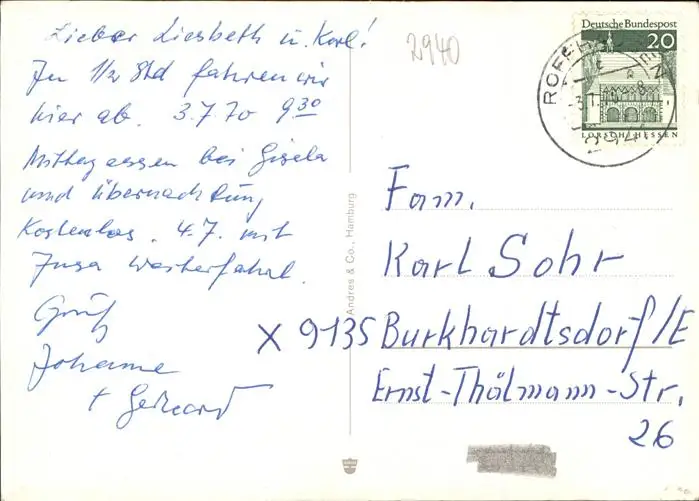 Lieber Liesbeth u. Karl!
In 1/2 Std fahren wir
hier ab. 3.7.70 9 30
Mittagessen bei Gisela
und übernachtung
Kostenlos. 4.7. mit
Weiterfahrt.
Gruß
Johanne
+ Gerhard
2940
Deutsche Bundespost
20
LORSCH/HESSEN
294
Andres & Co., Hamburg
Fam.
Karl Sohr
X 9135 Burkhardtsdorf/E
Ernst-Thälmann-Str.
26